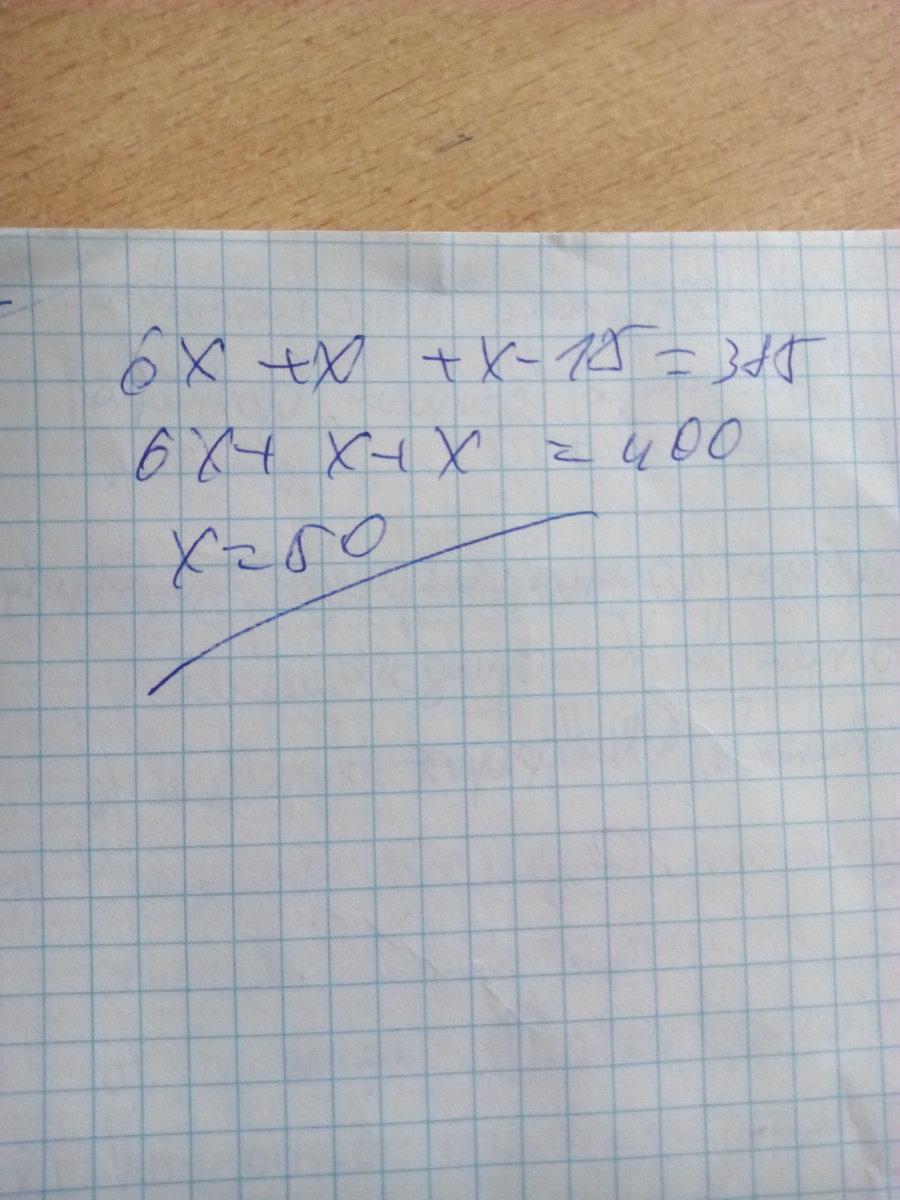 6x + x + x - 15 = 385
6x + x + x = 400
x = 50